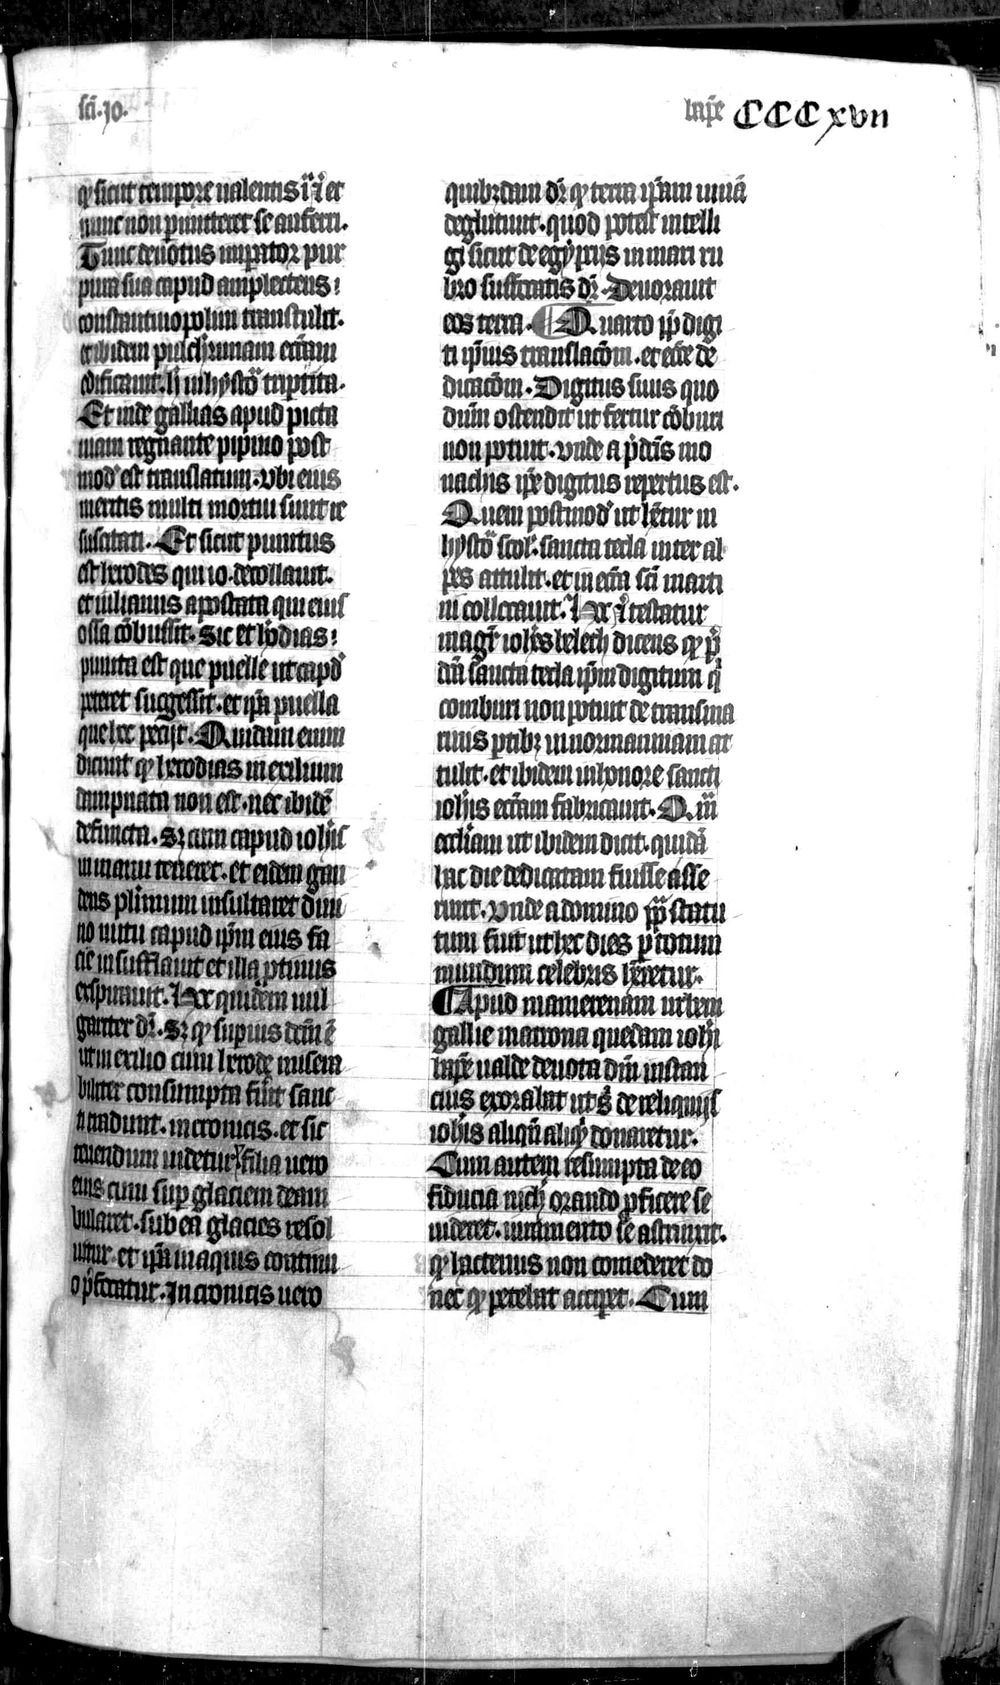 sci. Jo. bapte CCCxvii
q̃ sicut tempore ualentis ĩ ĩ et
nunc non permitteret se auferri.
Tunc deuotus impator pur
pura sua capud amplectens:
constantinopolim transtulit.
et ibidem pulcherrimam ecciam
edificauit. h in hysto tripertita.
Et inde gallias apud picta
uiam regnante pipino post
mod est translatum. vbi eius
meritis multi mortui sunt re
suscitati. Et sicut punitus
est herodes qui io. decollauit.
et iulianus apostata qui eius
ossa cobussit. Sic et hodias:
punita est que puelle ut capd
peteret suggessit. et ipa puella
que hec petijt. Quidam enim
dicunt q herodias in exilium
dampnata non est. nec ibide
defuncta. Sz cum capud iohis
in manu teneret. et eidem gau
dens plimum insultaret diui
no nutu capud ipm eius fa
cie insufflauit et illa ptinus
exspirauit. Hec quidem uul
gariter dr. Sz q supius dcm e
ut in exilio cum herode misera
biliter consumpta fuit sanc
ti tradunt. in cronicis. et sic
tenendum uidetur filia uero
eius cum sup glaciem deam
bularet. sub ea glacies resol
uitur. et ipa in aquis continu
o pfocatur. In cronicis uero
quibzdam dr q terra ipam uiua
deglutiuit. quod potest intelli
gi sicut de egyptijs in mari ru
bro suffocatis dr. Deuorauit
eos terra. Quarto pp digi
ti ipius translacom. et ecce de
dicacom. Digitus suus quo
dnm ostendit ut fertur coburi
non potuit. vnde a pdcis mo
nachis ipe digitus repertus est.
Quem postmod ut hetur in
hysto scol. sancta tecla inter al
pes attulit. et in eccia sci marti
ni collocauit. Hec testatur
magr iohes beleth dicens q p
dca sancta tecla ipm digitum q
comburi non potuit de transma
rinis ptibz in normanniam at
tulit. et ibidem in honore sancti
iohis ecciam fabricauit. Qm
eccliam ut ibidem dicit. quida
hac die dedicatam fuisse asse
runt. Vnde a domino pp statu
tum fuit ut hec dies p totum
mundum celebris heretur.
Apud mamerenam urbem
gallie matrona quedam iohi
bapte ualde deuota dm instan
cius exorabat ut s de reliquijs
iohis aliqn aliq donaretur.
Cum autem resumpta de eo
fiducia nich orando pficere se
uideret. iuramento se astrinxit.
q hactenus non comederet do
nec q petebat acciperet. Cum